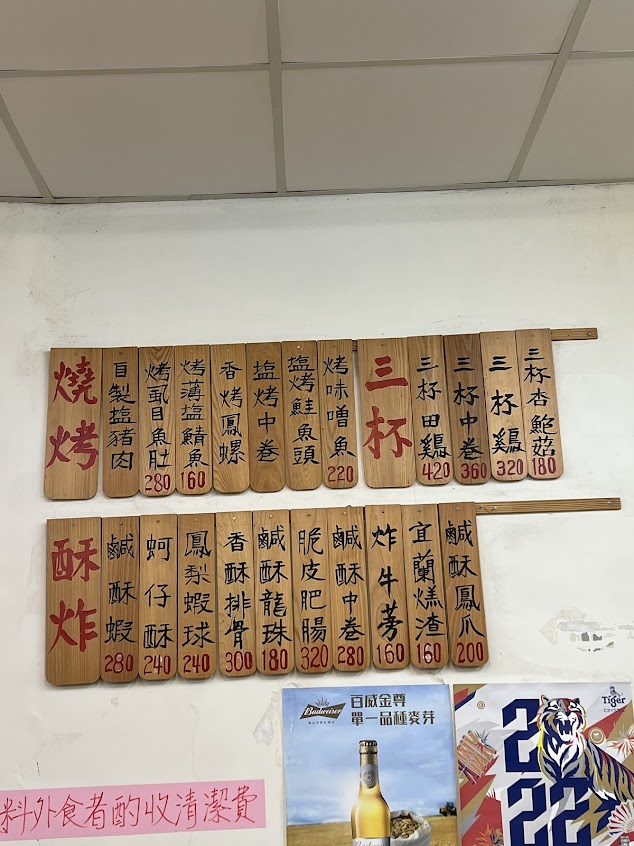 燒烤
自製塩豬肉
烤虱目魚肚 280
烤薄塩鯖魚 160
香烤鳳螺
塩烤中卷
塩烤鮭魚頭
烤味噌魚 220
三杯
三杯田鷄 420
三杯中卷 360
三杯鷄 320
三杯杏鮑菇 180
酥炸
鹹酥蝦 280
蚵仔酥 240
鳳梨蝦球 240
香酥排骨 300
鹹酥龍珠 180
脆皮肥腸 320
鹹酥中卷 280
炸牛蒡 160
宜蘭糕渣 160
鹹酥鳳爪 200
料外食者酌收清潔費
Budweiser
百威金尊
單一品種麥芽
Tiger
2022